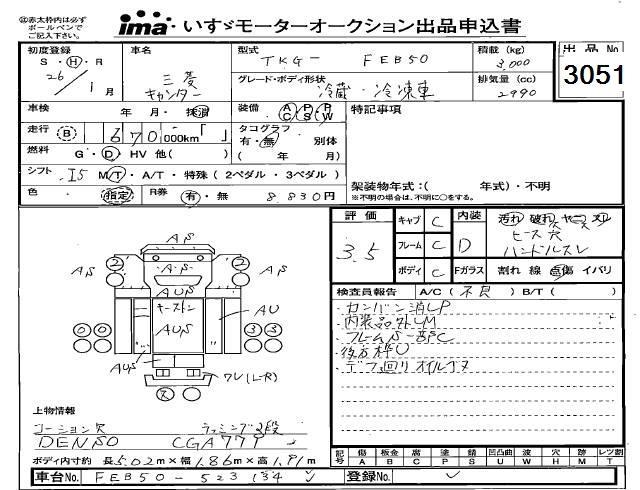 ㊟赤太枠内は必ず
ボールペンで
ご記入下さい。
ima いすゞモーターオークション出品申込書
初度登録 車名 型式 TKG- FEB50 積載 (kg) 3,000 出品No
S・H・R 26/1月 三菱 キャンター グレード・ボディ形状 冷蔵・冷凍車 排気量 (cc) 2990 3051
車検 年 月・抹消 装備 AC PS PW 特記事項
走行 B 670,000km「 」 タコグラフ 有・無 別体
燃料 G・D・HV 他( ) ( 年 月)
シフト I5 M/T・A/T・特殊 (2ペダル・3ペダル) 架装物年式:( 年式)・不明
※不明の場合は、不明に○をする。
色 指定 R券 有・無 8,830円
評価 3.5 キャブ C 内装 D 汚れ 破れ ヤニ スレ
ビス穴
フレーム C ハンドルスレ
ボディ C Fガラス 割れ 線 点傷 イバリ
検査員報告 A/C(不良) B/T( )
・カンバン消しP
・内装品外しM
・フレームS一部C
・後方枠U
・デフ回りオイルナヌ
AS
2 2
AS AS AS
AUS
キーストン
AU
AUS
3 3
AUS
ワレ(L-R)
上物情報
コーション欠 ラッシング2段
DENSO CGA777
ボディ内寸約 長5.02m×幅1.86m×高1.91m
記号 傷 A 板金 B 腐 C 塗 P 錆 S 凹凸曲 U 波 W 穴 H 跡 M レツ割 T
車台No. FEB50-523134 登録No.